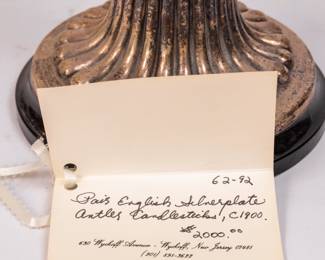 62-92
Pair English Silverplate
Antler Candlesticks, C1900.
$2000.00
630 Wyckoff Avenue - Wyckoff, New Jersey 07481
(201) 891-